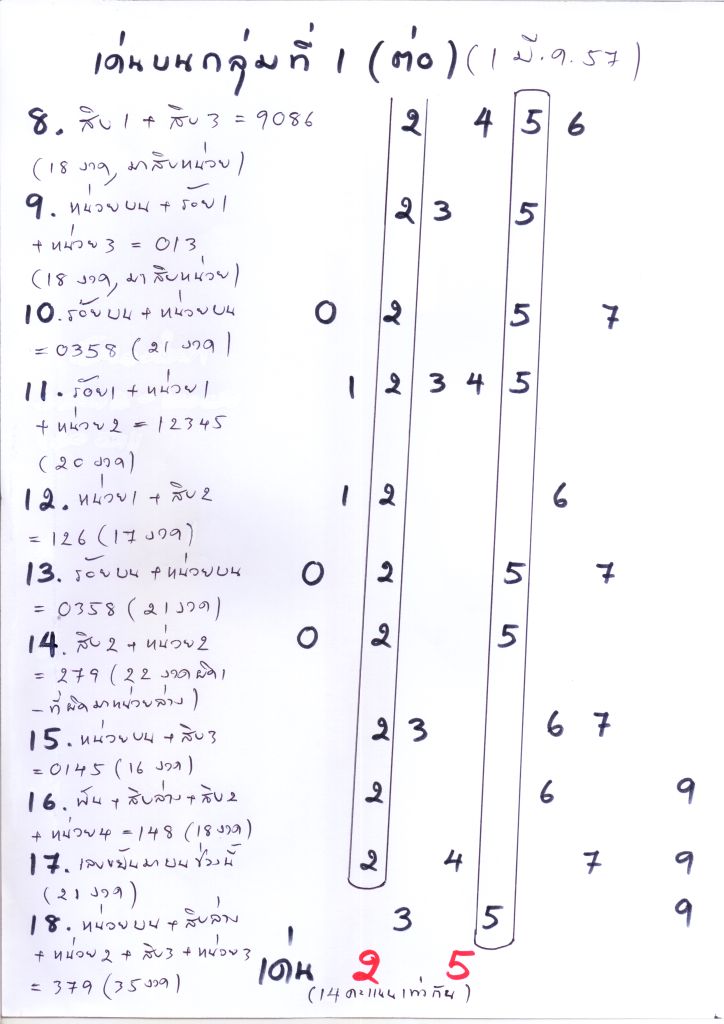 เด่นบนกลุ่มที่ 1 (ต่อ) (1 มี.ค. 57)
8. สิบ 1 + สิบ 3 = 9086 2 4 5 6
(18 งวด, มาสิบหน่วย)
9. หน่วยบน + ร้อย 1 2 3 5
+ หน่วย 3 = 013
(18 งวด, มาสิบหน่วย)
10. ร้อยบน + หน่วยบน 0 2 5 7
= 0358 (21 งวด)
11. ร้อย 1 + หน่วย 1 1 2 3 4 5
+ หน่วย 2 = 12345
(20 งวด)
12. หน่วย 1 + สิบ 2 1 2 6
= 126 (17 งวด)
13. ร้อยบน + หน่วยบน 0 2 5 7
= 0358 (21 งวด)
14. สิบ 2 + หน่วย 2 0 2 5
= 279 (22 งวดผิด 1
- ที่ผิดมาหน่วยล่าง)
15. หน่วยบน + สิบ 3 2 3 6 7
= 0145 (16 งวด)
16. พัน + สิบล่าง + สิบ 2 2 6 9
+ หน่วย 4 = 148 (18 งวด)
17. เลขขยันมาบนช่วงนี้ 2 4 7 9
(21 งวด)
18. หน่วยบน + สิบล่าง 3 5 9
+ หน่วย 2 + สิบ 3 + หน่วย 3
= 379 (35 งวด)
เด่น 2 5
(14 คะแนนเท่ากัน)